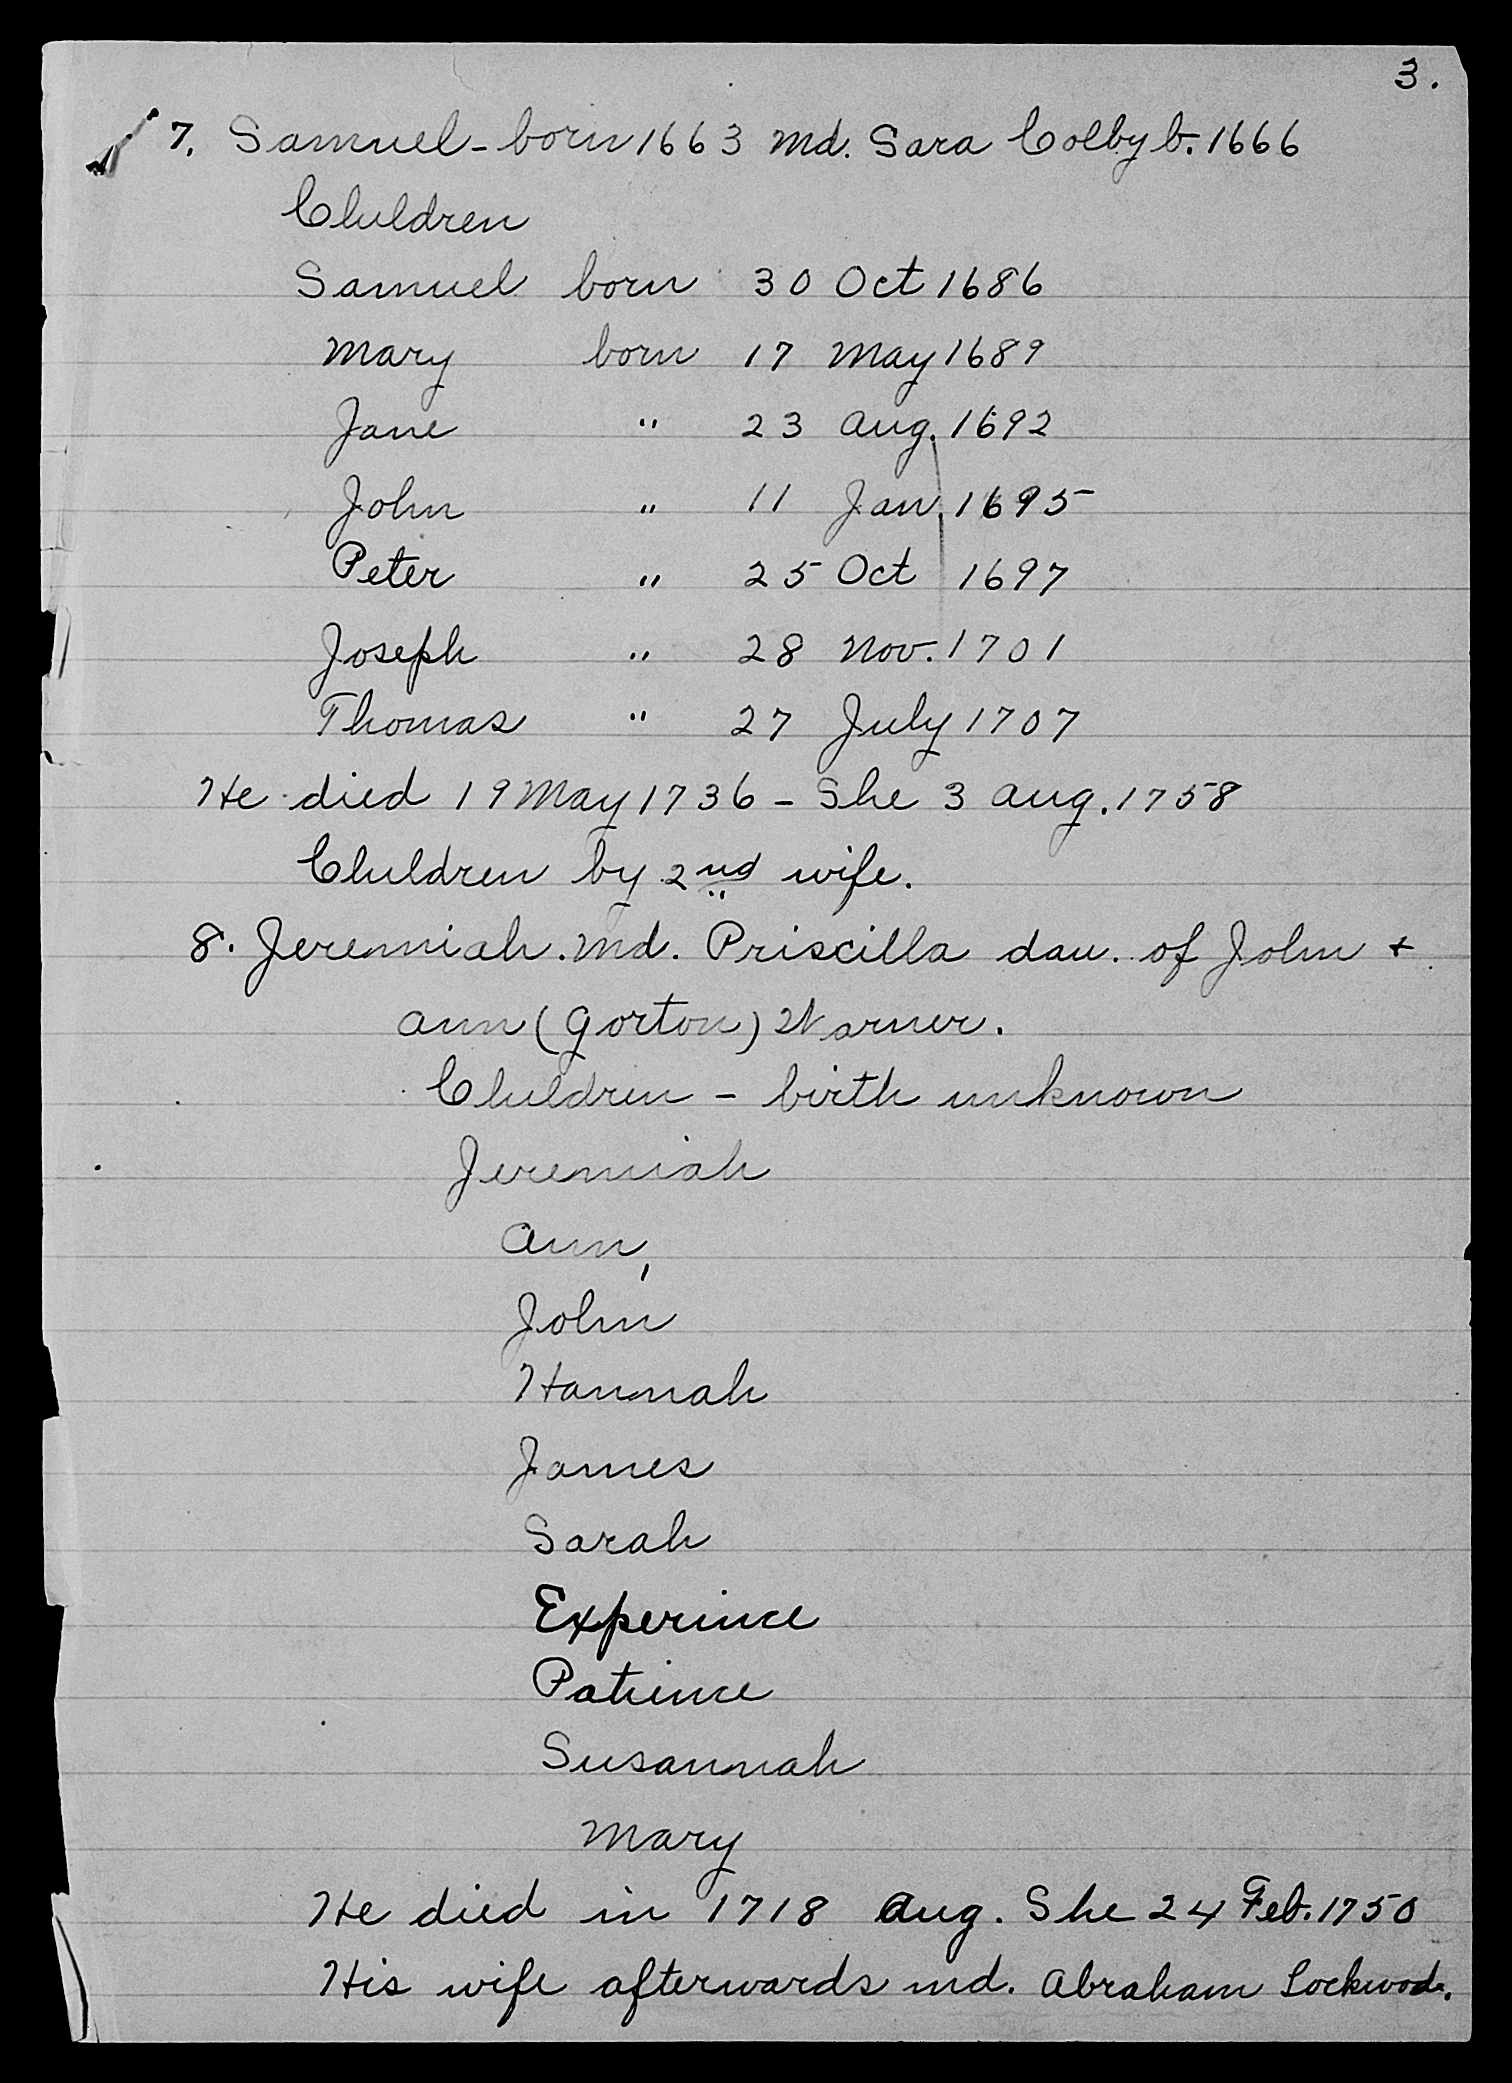 3.
7. Samuel - born 1663 md. Sara Colby b. 1666
Children
Samuel born 30 Oct 1686
Mary born 17 May 1689
Jane " 23 Aug. 1692
John " 11 Jan. 1695
Peter " 25 Oct 1697
Joseph " 28 Nov. 1701
Thomas " 27 July 1707
He died 19 May 1736 - She 3 Aug. 1758
Children by 2nd wife.
8. Jeremiah. md. Priscilla dau. of John +
Ann (Gorton) Warner.
Children - birth unknown
Jeremiah
Ann,
John
Hannah
James
Sarah
Experince
Patience
Susannah
Mary
He died in 1718 Aug. She 24 Feb. 1750
His wife afterwards md. Abraham Lockwood.